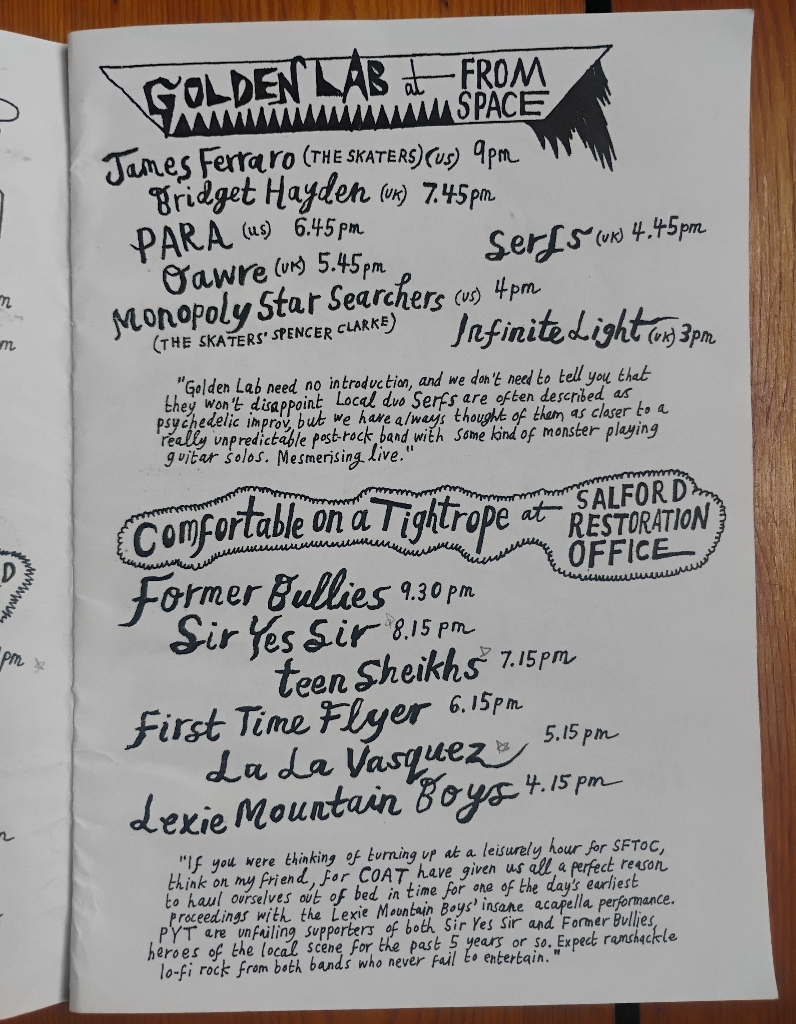 GOLDEN LAB at FROM SPACE
James Ferraro (THE SKATERS) (US) 9pm
Bridget Hayden (UK) 7.45pm
PARA (US) 6.45pm
Serfs (UK) 4.45pm
Gawre (UK) 5.45pm
Monopoly Star Searchers (US) 4pm
(THE SKATERS' SPENCER CLARKE)
Infinite Light (UK) 3pm
"Golden Lab need no introduction, and we don't need to tell you that
they won't disappoint Local duo Serfs are often described as
psychedelic improv, but we have always thought of them as closer to a
really unpredictable post-rock band with some kind of monster playing
guitar solos. Mesmerising live."
Comfortable on a Tightrope at SALFORD
RESTORATION
OFFICE
Former Bullies 9.30 pm
Sir Yes Sir 8.15 pm
teen Sheikhs 7.15pm
First Time Flyer 6.15pm
La La Vasquez 5.15 pm
Lexie Mountain Boys 4.15 pm
"If you were thinking of turning up at a leisurely hour for SFTOC,
think on my friend, for COAT have given us all a perfect reason
to haul ourselves out of bed in time for one of the day's earliest
proceedings with the Lexie Mountain Boys' insane acapella performance.
PYT are unfailing supporters of both Sir Yes Sir and Former Bullies,
heroes of the local scene for the past 5 years or so. Expect ramshackle
lo-fi rock from both bands who never fail to entertain."